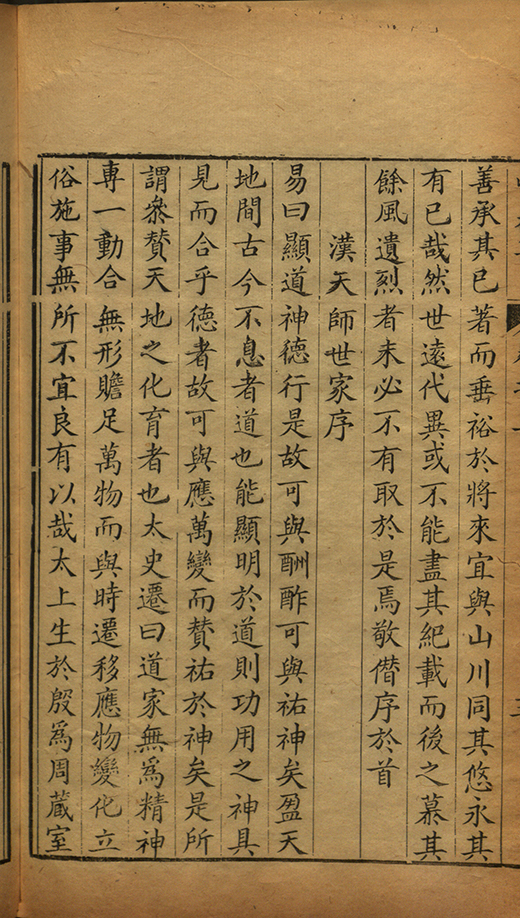 善承其已著而垂裕於將來宜與山川同其悠永其
有已哉然世遠代異或不能盡其紀載而後之慕其
餘風遺烈者未必不有取於是焉敬僣序於首
漢天師世家序
易曰顯道神德行是故可與酬酢可與祐神矣盈天
地間古今不息者道也能顯明於道則功用之神具
見而合乎德者故可與應萬變而賛祐於神矣是所
謂叅賛天地之化育者也太史遷曰道家無爲精神
專一動合無形贍足萬物而與時遷移應物變化立
俗施事無所不宜良有以哉太上生於殷爲周藏室